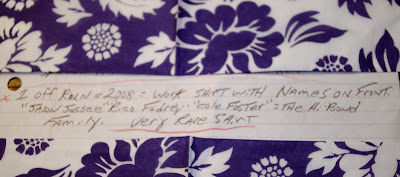 1 off RUN = 2008 = WORK SHIRT WITH NAMES ON FRONT.
"JASON JESSEE" Rico "Cole FOSTER" = THE A. BOMB
FAMILY. Very RARE SHIRT